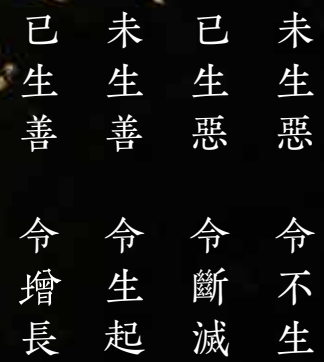 未生惡 令不生
已生惡 令斷滅
未生善 令生起
已生善 令增長